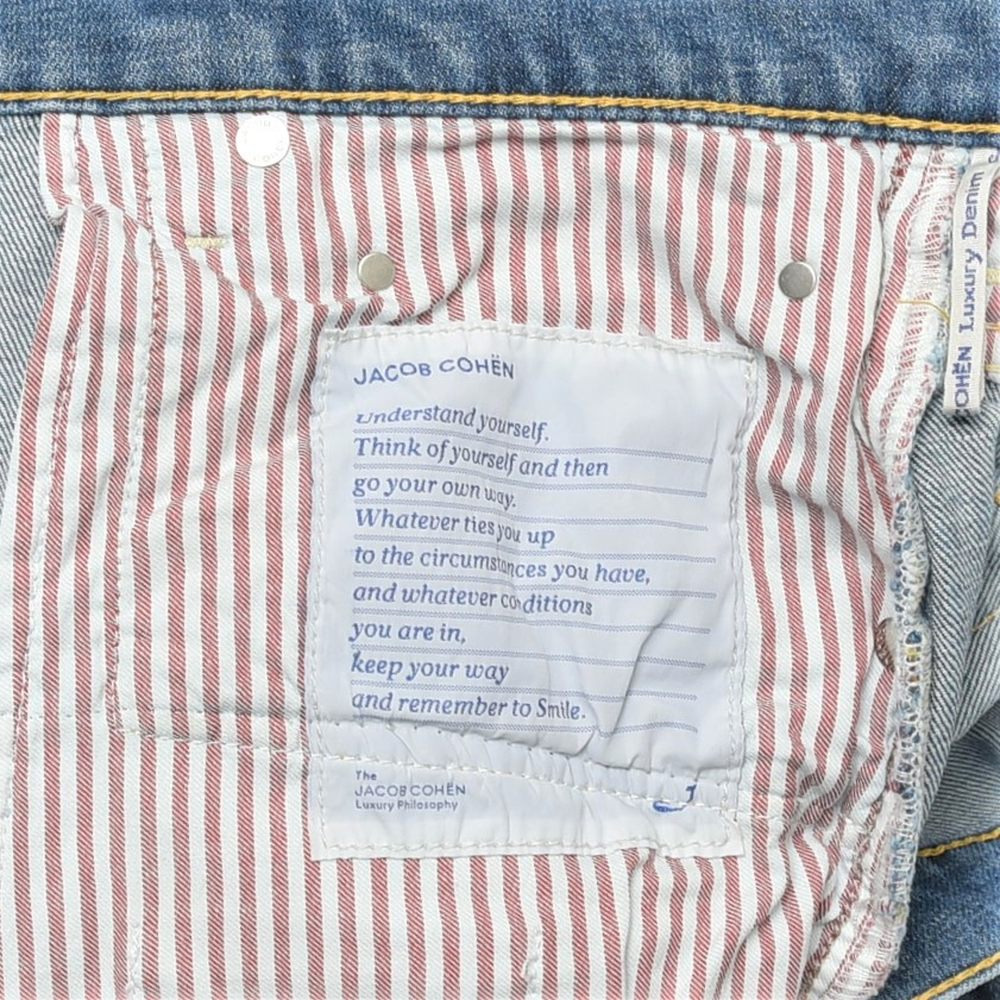 JACOB COHËN
Understand yourself.
Think of yourself and then
go your own way.
Whatever ties you up
to the circumstances you have,
and whatever conditions
you are in,
keep your way
and remember to Smile.
The
JACOB COHËN
Luxury Philosophy
OHËN Luxury Denim